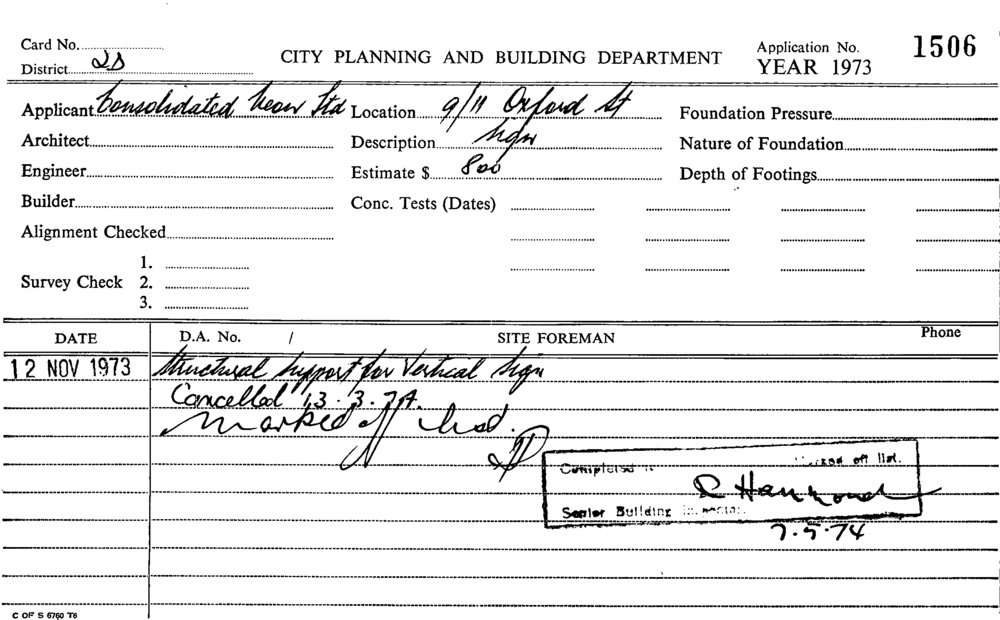 Card No.
District 2D
CITY PLANNING AND BUILDING DEPARTMENT
Application No. 1506
YEAR 1973
Applicant Consolidated Neon Ltd Location 9/11 Oxford St Foundation Pressure
Architect Description Sign Nature of Foundation
Engineer Estimate $ 800 Depth of Footings
Builder Conc. Tests (Dates)
Alignment Checked
1.
Survey Check 2.
3.
DATE D.A. No. / SITE FOREMAN Phone
12 NOV 1973 Structural support for Vertical Sign
Cancelled 13.3.74.
Marked off
Completed off list.
R Hammond
Senior Building
7.5.74
C OF S 6760 T6